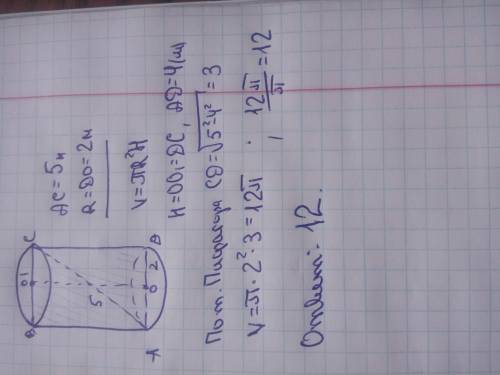 B O₁ C
5
O 2
A D
AC = 5м
R = DO = 2м
V = πR²H
H = OO₁ = DC, AD = 4 (м)
По т. Пифагора CD = √5²-4² = 3
V = π · 2² · 3 = 12π , 12π/π = 12
Ответ: 12.